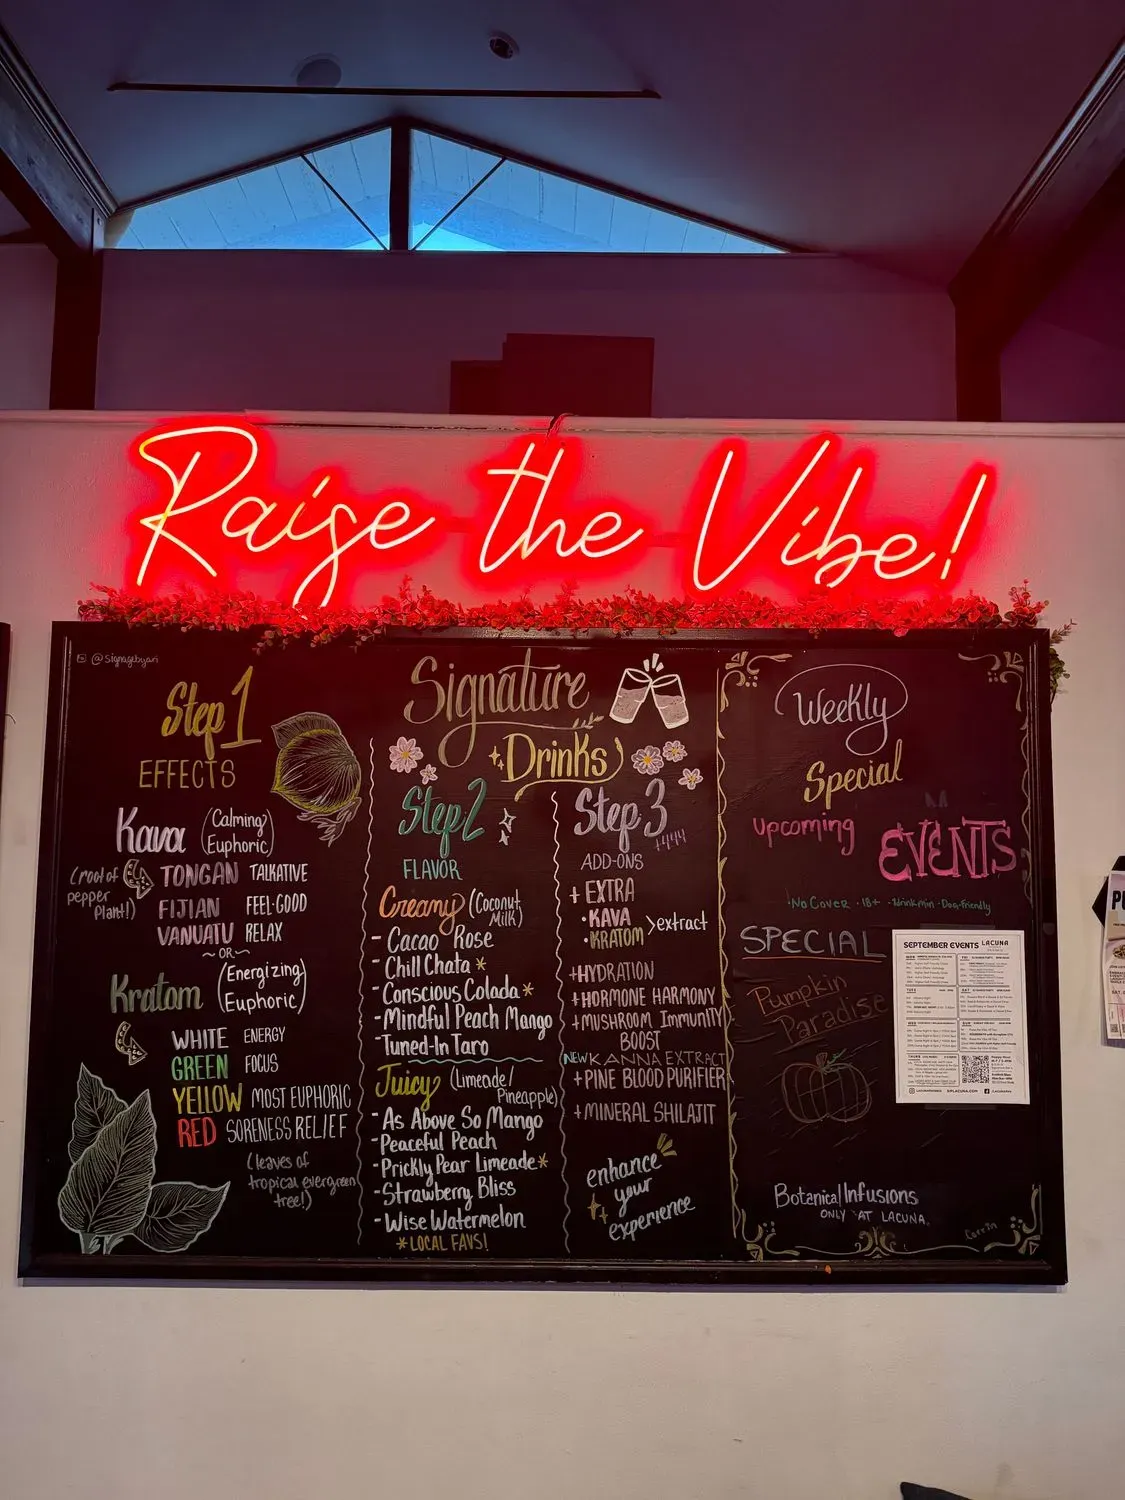 Raise the Vibe!
@signagebyari
Step 1
EFFECTS
Kava (Calming
Euphoric)
(root of
pepper
plant!)
TONGAN TALKATIVE
FIJIAN FEEL-GOOD
VANUATU RELAX
~OR~
Kratom (Energizing
Euphoric)
WHITE ENERGY
GREEN FOCUS
YELLOW MOST EUPHORIC
RED SORENESS RELIEF
(leaves of
tropical evergreen
tree!)
Signature
Drinks
Step 2
FLAVOR
Creamy (Coconut
Milk)
- Cacao Rose
- Chill Chata *
- Conscious Colada *
- Mindful Peach Mango
- Tuned-In Taro
Juicy (Limeade/
Pineapple)
- As Above So Mango
- Peaceful Peach
- Prickly Pear Limeade *
- Strawberry Bliss
- Wise Watermelon
* LOCAL FAVS!
Step 3
+444
ADD-ONS
+ EXTRA
• KAVA
• KRATOM > extract
+HYDRATION
+HORMONE HARMONY
+MUSHROOM IMMUNITY
BOOST
NEW KANNA EXTRACT
+PINE BLOOD PURIFIER
+MINERAL SHILAJIT
enhance
your
experience
Weekly
Special
Upcoming
EVENTS
No Cover • 18+ • 1drink min • Dog-friendly
SPECIAL
Pumpkin
Paradise
SEPTEMBER EVENTS LACUNA
Botanical Infusions
ONLY AT LACUNA.